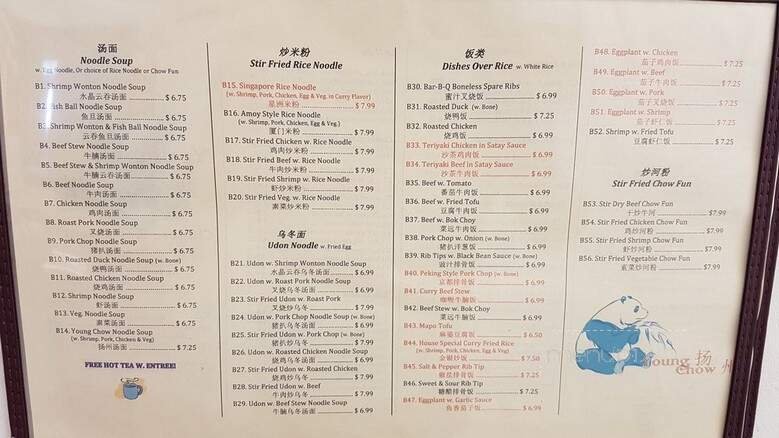 汤面
Noodle Soup
w. Egg Noodle, Or choice of Rice Noodle or Chow Fun
B1. Shrimp Wonton Noodle Soup
水晶云吞汤面 ........ $ 6.75
B2. Fish Ball Noodle Soup
鱼旦汤面 ........ $ 6.75
B3. Shrimp Wonton & Fish Ball Noodle Soup
云吞鱼旦汤面 ........ $ 6.75
B4. Beef Stew Noodle Soup
牛腩汤面 ........ $ 6.75
B5. Beef Stew & Shrimp Wonton Noodle Soup
牛腩云吞汤面 ........ $ 6.75
B6. Beef Noodle Soup
牛肉汤面 ........ $ 6.75
B7. Chicken Noodle Soup
鸡肉汤面 ........ $ 6.75
B8. Roast Pork Noodle Soup
叉烧汤面 ........ $ 6.75
B9. Pork Chop Noodle Soup
猪扒汤面 ........ $ 6.75
B10. Roasted Duck Noodle Soup (w. Bone)
烧鸭汤面 ........ $ 6.75
B11. Roasted Chicken Noodle Soup
烧鸡汤面 ........ $ 6.75
B12. Shrimp Noodle Soup
虾汤面 ........ $ 6.75
B13. Veg. Noodle Soup
素菜汤面 ........ $ 6.75
B14. Young Chow Noodle Soup
(w. Shrimp, Pork, Chicken & Veg)
扬州汤面 ........ $ 7.25
FREE HOT TEA W. ENTREE!
炒米粉
Stir Fried Rice Noodle
B15. Singapore Rice Noodle
(w. Shrimp, Pork, Chicken, Egg & Veg. in Curry Flavor)
星洲米粉 ........ $ 7.99
B16. Amoy Style Rice Noodle
(w. Shrimp, Pork, Chicken, Egg & Veg.)
厦门米粉 ........ $ 7.99
B17. Stir Fried Chicken w. Rice Noodle
鸡肉炒米粉 ........ $ 7.99
B18. Stir Fried Beef w. Rice Noodle
牛肉炒米粉 ........ $ 7.99
B19. Stir Fried Shrimp w. Rice Noodle
虾炒米粉 ........ $ 7.99
B20. Stir Fried Veg. w. Rice Noodle
素菜炒米粉 ........ $ 7.99
乌冬面
Udon Noodle w. Fried Egg
B21. Udon w. Shrimp Wonton Noodle Soup
水晶云吞乌冬汤面 ........ $ 6.99
B22. Udon w. Roast Pork Noodle Soup
叉烧乌冬汤面 ........ $ 6.99
B23. Stir Fried Udon w. Roast Pork
叉烧炒乌冬 ........ $ 7.99
B24. Udon w. Pork Chop Noodle Soup (w. Bone)
猪扒乌冬汤面 ........ $ 6.99
B25. Stir Fried Udon w. Pork Chop (w. Bone)
猪扒炒乌冬 ........ $ 7.99
B26. Udon w. Roasted Chicken Noodle Soup
烧鸡乌冬汤面 ........ $ 6.99
B27. Stir Fried Udon w. Roasted Chicken
烧鸡炒乌冬 ........ $ 7.99
B28. Stir Fried Udon w. Beef
牛肉炒乌冬 ........ $ 7.99
B29. Udon w. Beef Stew Noodle Soup
牛腩乌冬汤面 ........ $ 6.99
饭类
Dishes Over Rice w. White Rice
B30. Bar-B-Q Boneless Spare Ribs
蜜汁叉烧饭 ........ $ 6.99
B31. Roasted Duck (w. Bone)
烧鸭饭 ........ $ 7.25
B32. Roasted Chicken
烧鸡饭 ........ $ 6.99
B33. Teriyaki Chicken in Satay Sauce
沙茶鸡肉饭 ........ $ 6.99
B34. Teriyaki Beef in Satay Sauce
沙茶牛肉饭 ........ $ 6.99
B35. Beef w. Tomato
番茄牛肉饭 ........ $ 6.99
B36. Beef w. Fried Tofu
豆腐牛肉饭 ........ $ 6.99
B37. Beef w. Bok Choy
菜远牛肉饭 ........ $ 6.99
B38. Pork Chop w. Onion (w. Bone)
猪扒洋葱饭 ........ $ 6.99
B39. Rib Tips w. Black Bean Sauce (w. Bone)
豉汁排骨饭 ........ $ 6.99
B40. Peking Style Pork Chop (w. Bone)
京都排骨饭 ........ $ 6.99
B41. Curry Beef Stew
咖喱牛腩饭 ........ $ 6.99
B42. Beef Stew w. Bok Choy
菜远牛腩饭 ........ $ 6.99
B43. Mapo Tofu
麻婆豆腐饭 ........ $ 6.50
B44. House Special Curry Fried Rice
(w. Shrimp, Pork, Chicken, Egg & Veg)
金银炒饭 ........ $ 7.50
B45. Salt & Pepper Rib Tip
椒盐排骨饭 ........ $ 7.25
B46. Sweet & Sour Rib Tip
糖醋排骨饭 ........ $ 7.25
B47. Eggplant w. Garlic Sauce
鱼香茄子饭 ........ $ 6.99
B48. Eggplant w. Chicken
茄子鸡肉饭 ........ $ 7.25
B49. Eggplant w. Beef
茄子牛肉饭 ........ $ 7.25
B50. Eggplant w. Pork
茄子叉烧饭 ........ $ 7.25
B51. Eggplant w. Shrimp
茄子虾仁饭 ........ $ 7.25
B52. Shrimp w. Fried Tofu
豆腐虾仁饭 ........ $ 7.25
炒河粉
Stir Fried Chow Fun
B53. Stir Dry Beef Chow Fun
干炒牛河 ........ $7.99
B54. Stir Fried Chicken Chow Fun
鸡炒河粉 ........ $7.99
B55. Stir Fried Shrimp Chow Fun
虾炒河粉 ........ $7.99
B56. Stir Fried Vegetable Chow Fun
素菜炒河粉 ........ $7.99
Young 扬
Chow 州